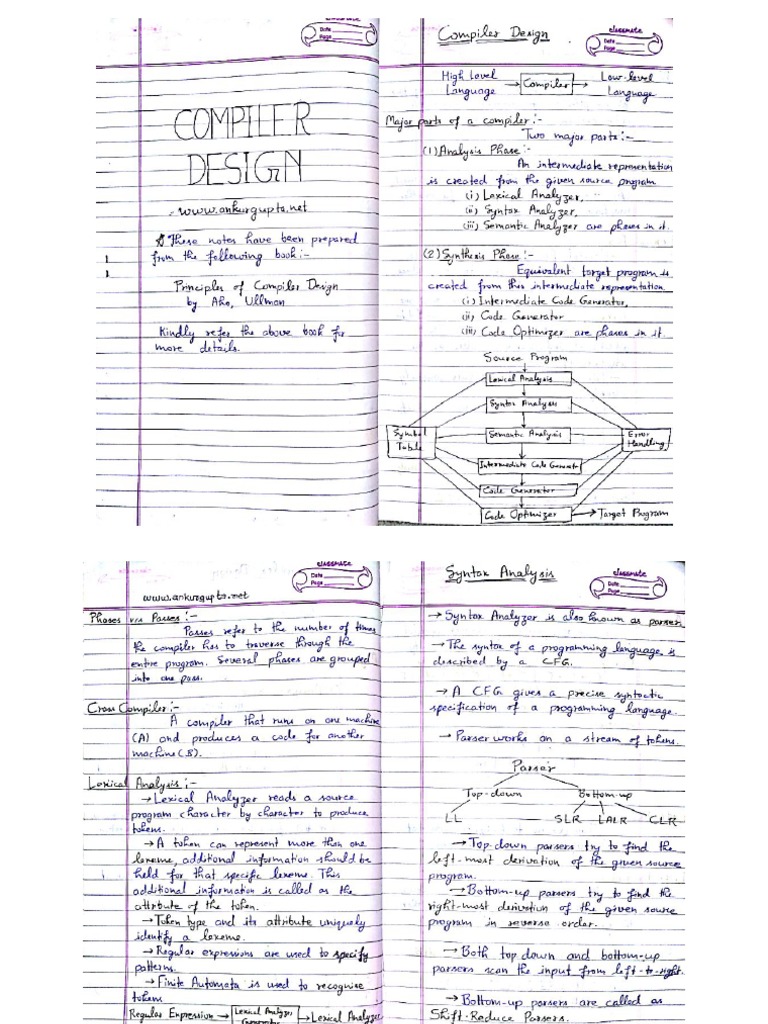 classmate
Date
Page
COMPILER
DESIGN
- www.ankurgupta.net
These notes have been prepared
from the following book:-
Principles of Compiler Design
by Aho, Ullman
Kindly refer the above book for
more details.
Compiler Design
classmate
Date
Page
High Level
Language
Compiler
Low-level
Language
Major parts of a compiler:-
Two major parts:-
(1) Analysis Phase:-
An intermediate representation
is created from the given source program
(i) Lexical Analyzer,
(ii) Syntax Analyzer,
(iii) Semantic Analyzer are phases in it.
(2) Synthesis Phase:-
Equivalent target program is
created from this intermediate representation
(i) Intermediate Code Generator,
(ii) Code Generator
(iii) Code Optimizer are phases in it.
Source Program
Lexical Analysis
Syntax Analysis
Symbol
Table
Semantic Analysis
Error
Handling
Intermediate Code Generator
Code Generator
Code Optimizer → Target Program
classmate
Date
Page
www.ankurgupta.net
Phases v/s Passes:-
Passes refer to the number of times
the compiler has to traverse through the
entire program. Several phases are grouped
into one pass.
Cross Compiler:-
A compiler that runs on one machine
(A) and produces a code for another
machine (B).
Lexical Analysis:-
→ Lexical Analyzer reads a source
program character by character to produce
tokens.
→ A token can represent more than one
lexeme, additional information should be
held for that specific lexeme. This
additional information is called as the
attribute of the token.
→ Token type and its attribute uniquely
identify a lexeme.
→ Regular expressions are used to specify
patterns.
→ Finite Automata is used to recognise
tokens
Regular Expression → Lexical Analyzer Generator → Lexical Analyzer
Syntax Analysis
classmate
Date
Page
→ Syntax Analyzer is also known as parser
→ The syntax of a programming language is
described by a CFG.
→ A CFG gives a precise syntactic
specification of a programming language.
→ Parser works on a stream of tokens.
Parser
Top-down Bottom-up
LL SLR LALR CLR
→ Top-down parsers try to find the
left-most derivation of the given source
program.
→ Bottom-up parsers try to find the
right-most derivation of the given source
program in reverse order.
→ Both top down and bottom-up
parsers scan the input from left-to-right.
→ Bottom-up parsers are called as
Shift-Reduce Parsers.